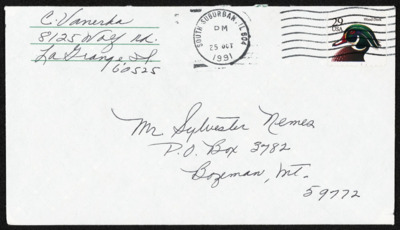 C. Vanerka
8125 Wolf Rd.
La Grange Il
60525
SOUTH SUBURBAN, IL 604
PM
25 OCT
1991
29
USA
Wood Duck
Mr Sylvester Nemes
P.O. Box 3782
Bozeman, Mt.
59772